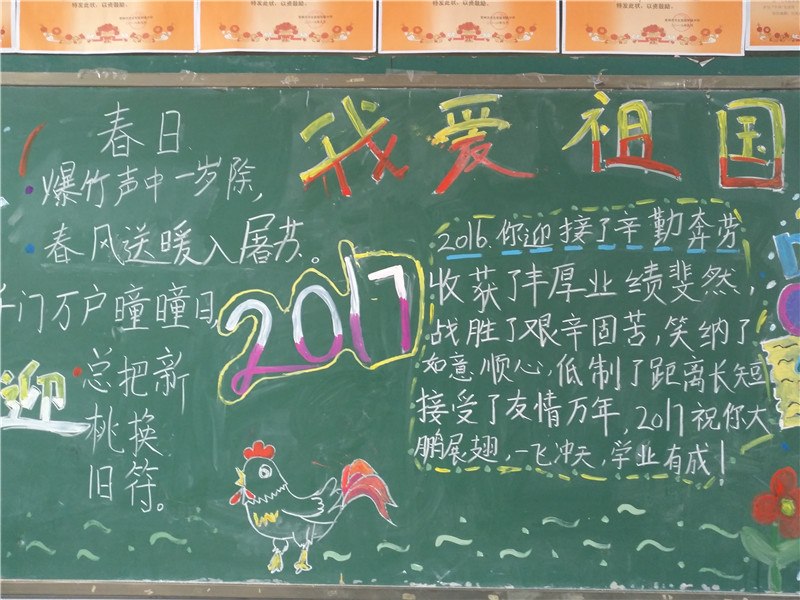 特发此状，以资鼓励。
特发此状，以资鼓励。
特发此状，以资鼓励。
特发此状，以资鼓励。
我爱祖国
春日
爆竹声中一岁除，
春风送暖入屠苏。
千门万户曈曈日
总把新
桃换
旧符。
迎
2017
2016.你迎接了辛勤奔劳
收获了丰厚业绩斐然，
战胜了艰辛固苦，笑纳了
如意顺心，低制了距离长短
接受了友情万年，2017祝你大
鹏展翅，一飞冲天，学业有成！